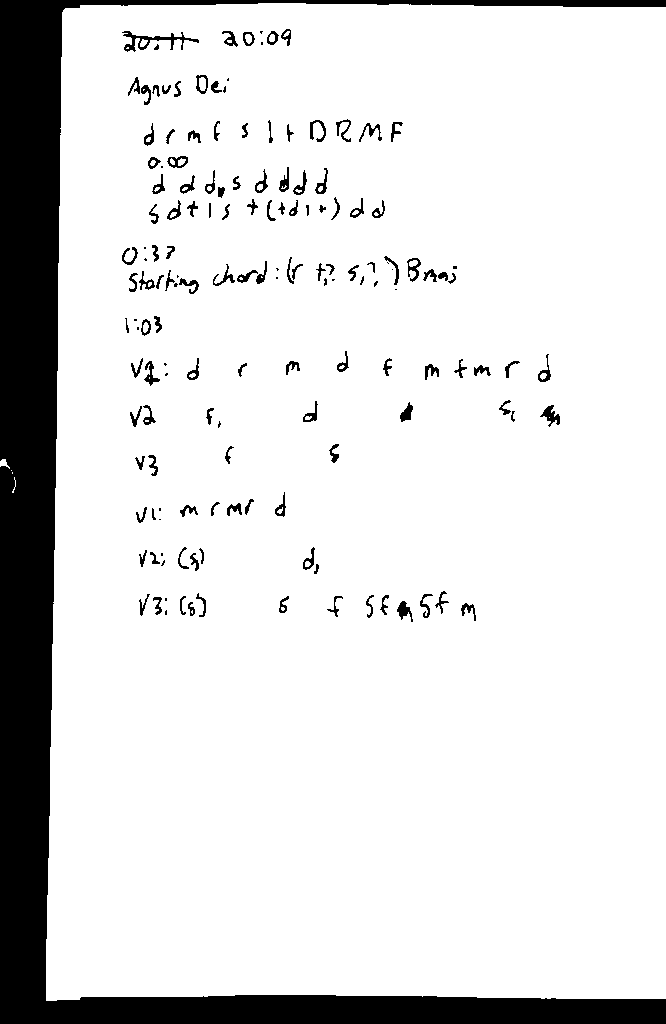 20:11 20:09
Agnus Dei
d r m f s l t D R M F
0:00
d d d, s d d d d
s d t l s t (t d l t) d d
0:37
Starting chord: (r t,? s,?) Bmaj
1:03
V1: d r m d f m f m r d
V2 f, d s,
V3 f s
V1: m r m r d
V2: (s,) d,
V3: (s) s f s f m s f m